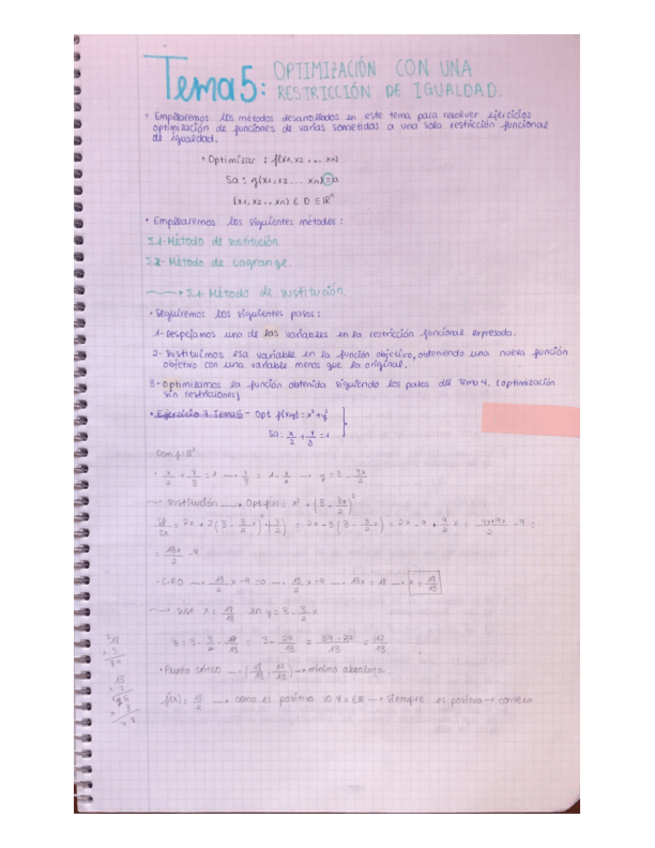 Tema 5: OPTIMIZACIÓN CON UNA
RESTRICCIÓN DE IGUALDAD.
• Emplearemos los métodos desarrollados en este tema para resolver ejercicios
optimización de funciones de varias sometidas a una sola restricción funcional
de igualdad.
• Optimizar : f(x1, x2 ... xn)
Sa : g(x1, x2 ... xn) = a
(x1, x2 .. xn) ∈ D ⊆ ℝⁿ
• Emplearemos los siguientes métodos :
5.1- Método de sustitución
5.2- Método de Lagrange.
5.1 Método de sustitución.
• Seguiremos los siguientes pasos :
1- Despejamos una de las variables en la restricción funcional expresada.
2- Sustituimos esa variable en la función objetivo, obteniendo una nueva función
objetivo con una variable menos que la original.
3- Optimizamos la función obtenida siguiendo los pasos del Tema 4. (optimización
sin restricciones)
• Ejercicio 3 Tema 5 - Opt f(x,y) = x² + y²
Sa: x/2 + y/3 = 1
• x/2 + y/3 = 1 → y/3 = 1 - x/2 → y = 3 - 3x/2
→ Sustitución → Opt f(x) = x² + (3 - 3x/2)²
= 13x/2 - 9
• C.P.O → 13/2 x - 9 = 0 → 13/2 x = 9 → 13x = 18 → x = 18/13
→ Sust x = 18/13 en y = 3 - 3/2 x
y = 3 - 3/2 · 18/13 = 3 - 27/13 = 39 - 27/13 = 12/13
• Punto crítico → (18/13, 12/13) → mínimo absoluto.
f(x) = 13/2 → como es positiva → siempre es positiva → convexa